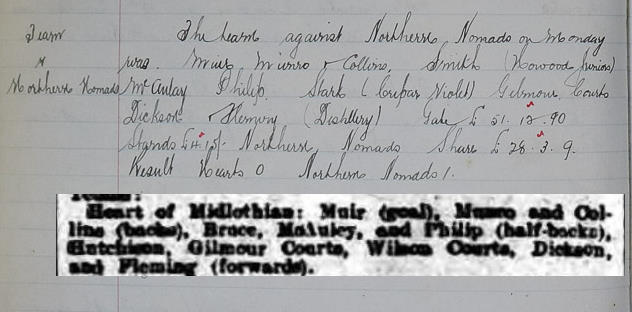 Team
v
Northern Nomads
The team against Northern Nomads on Monday
was. Muir Munro & Collins, Smith (Howood Juniors)
McAulay Philip. Stark (Cupar Violet) Gilmour, Courts
Dickson & Fleming (Distillery) Gate £ 51. 12. 90
Stands £4.15/- Northern Nomads Share £ 28. 3. 9.
Result Hearts 0 Northern Nomads 1.
Heart of Midlothian: Muir (goal), Munro and Col-
lins (backs), Bruce, McAuley, and Philip (half-backs),
Hutchison, Gilmour Courts, Wilson Courts, Dickson,
and Fleming (forwards).